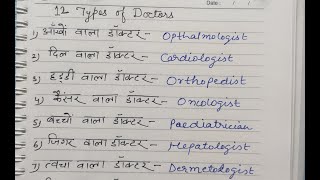 12 Types of Doctors
Date : / /
1) आँखों वाला डॉक्टर - Opthalmologist
2) दिल वाला डॉक्टर - Cardiologist
3) हड्डी वाला डॉक्टर - Orthopedist
4) कैंसर वाला डॉक्टर - Oncologist
5) बच्चों वाला डॉक्टर - Paediatrician
6) जिगर वाला डॉक्टर - Hepatologist
7) त्वचा वाला डॉक्टर - Dermetologist